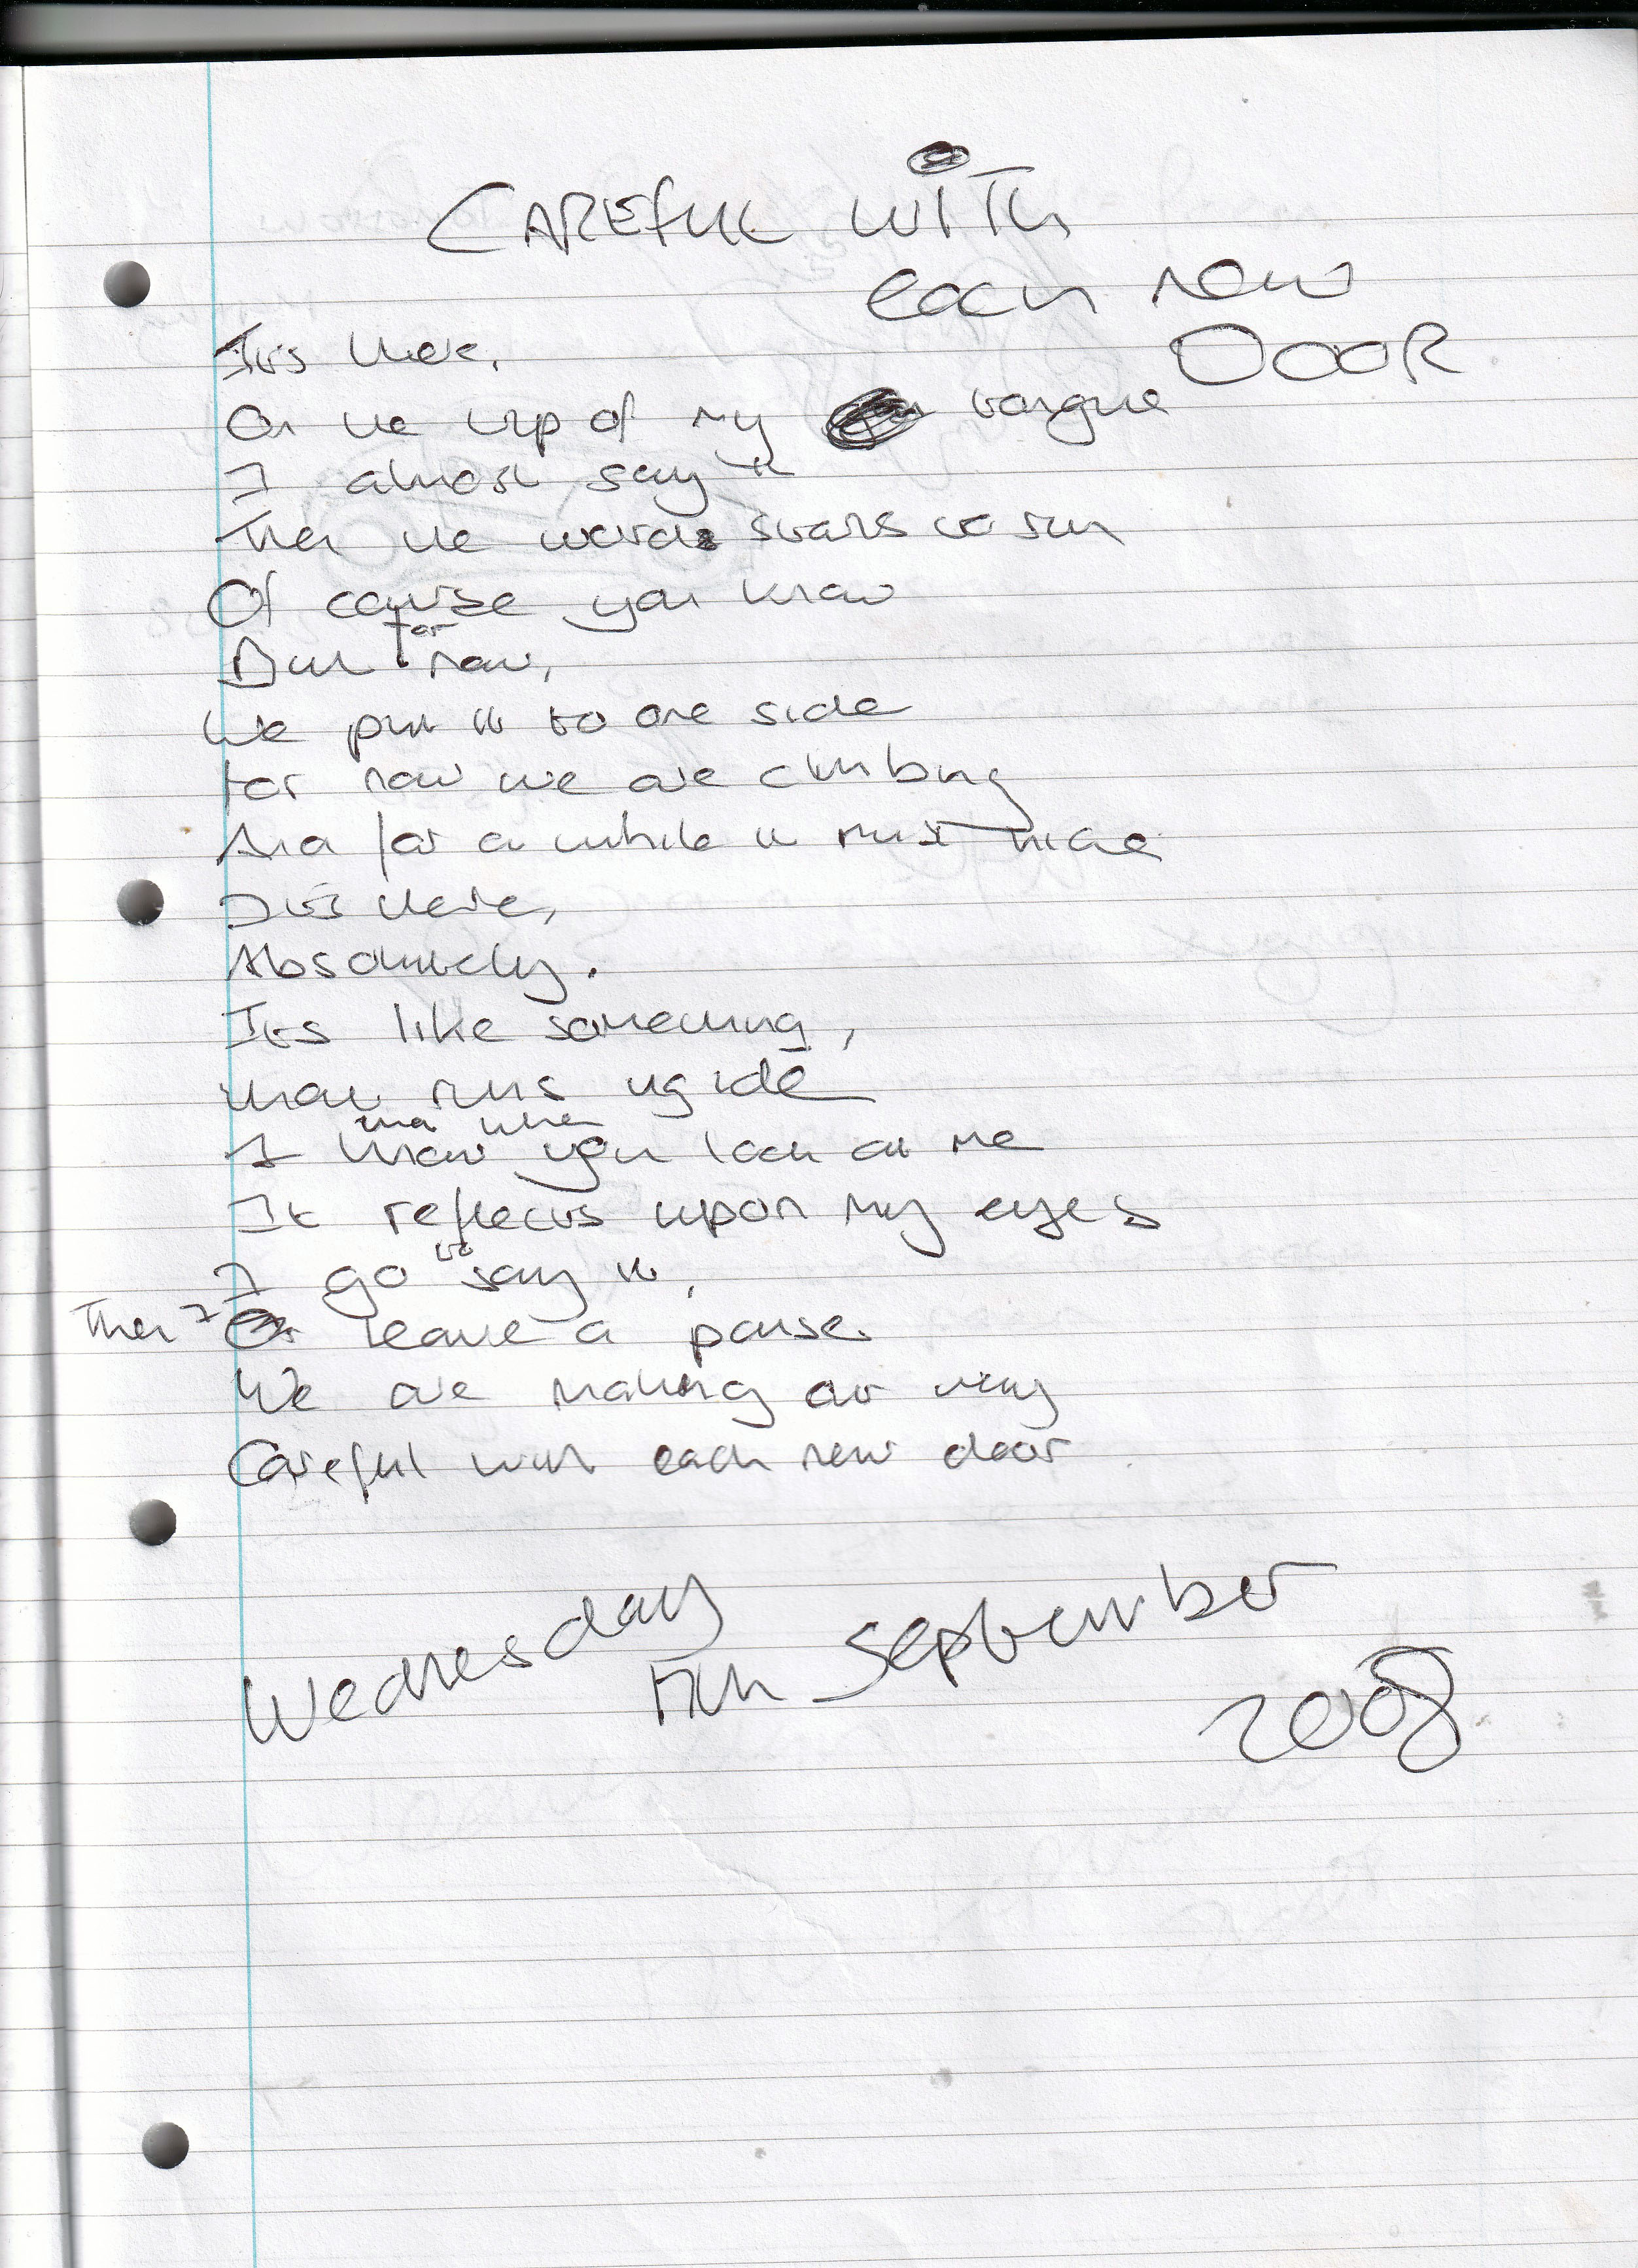 CAREFUL WITH
each new
DOOR
It's there,
On the tip of my tongue
I almost say it
Then the word starts to run
Of course you know
But for now,
We put it to one side
For now we are climbing
And for a while it must hide
It's there,
Absolutely.
It's like something,
that runs inside
I know that when you look at me
It reflects upon my eyes
I go to say it,
Then I leave a pause
We are making our way
Careful with each new door
Wednesday
17th September
2008